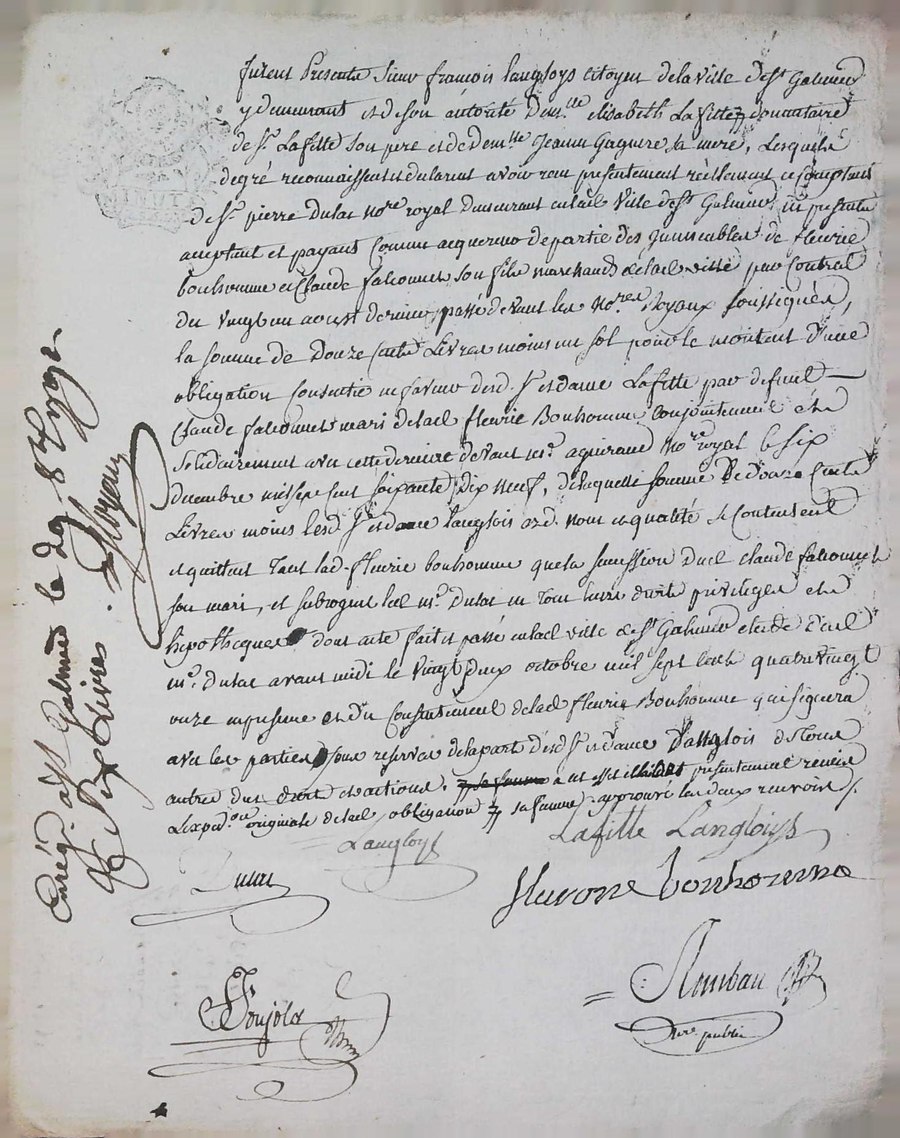 furent Presents Sieur françois Langloys citoyen de la ville de St Galmier
y demeurant et de son autorité Demlle elisabeth Lafitte donnataire
de Sr Lafitte son pere et de Demlle Jeanne sa mere, Lesquels
degré reconnaissent et declarent avoir recu presentement réellement et comptant
de Sr pierre Dulac nore royal demeurant en lad ville de St Galmier, ici present
acceptant et payant comme acquereur de partie des immeubles de fleurie
bonhomme et Claude falconnet son fils marchands de lad ville par contrat
du vingt un aoust dernier passé devant les nores Royaux soussignés,
la somme de Douze cents Livres moins un sol pour le montant d'une
obligation consentie en faveur desd. Sr et dame Lafitte par defunt
Claude falconnet mari de lad fleurie Bonhomme conjointement et
solidairement avec cette derniere devant me aguiraud nore royal le six
decembre mil sept cent soixante Dix neuf, de laquelle somme de Douze cents
Livres moins lesd Sr et dame Langlois aud. nom et qualité se contentent
et quittent tant lad. fleurie bonhomme que la succession dud claude falconnet
son mari, et subrogent led me dulac en tous leurs droits privileges et
hipotheques dont acte fait et passé en lad ville de St Galmier etude dud
me. dulac avant midi le vingt deux octobre mil sept cent quatre vingt
onze en presence et du consentement de lad fleurie Bonhomme qui signera
avec les parties sous reserve de la part desd Sr et dame Langlois de tous
autres dus droits et actions. à cet effet presentement remise
L'expedon originale de lad obligation sa femme approuvé les deux renvois /.
Langloys
Lafitte Langloys
Dulac
fleurone bonhomme
Poujols
nore public
Enrég. a St Galmier le 29 8bre 1791
Six Livres